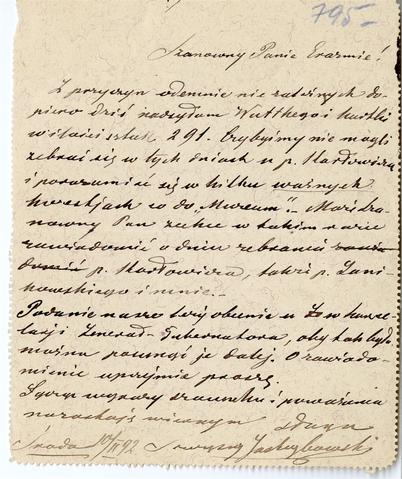 795-
Szanowny Panie Erazmie!
Z przyczyn odemnie nie zależnych do-
piero dziś nadsyłam Wutthego i kartki
w ilości sztuk 291. Czybyśmy nie mogli
zebrać się w tych dniach u p. Karłowicza
i porozumieć się w kilku ważnych
kwestjach co do "Muzeum". Może Sza-
nowny Pan zechce w takim razie
zawiadomić o dniu zebrania
p. Karłowicza, także p.
i mnie.-
Podanie nasze leży obecnie u w kance-
larji Generał-Gubernatora, aby tak było
można posunąć je dalej. O zawiado-
mienie uprzejmie proszę.
Łączę wyrazy szacunku i poważania
pozostaję wiernym sługą
Środa 92